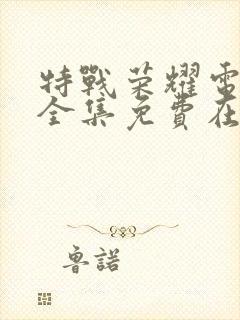 特戰荣耀電
全集免費在
鲁諾